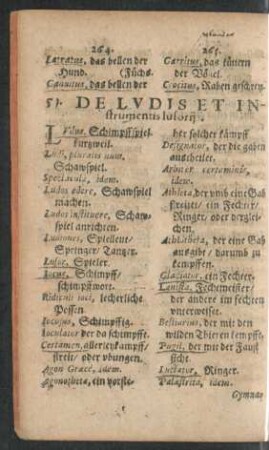 264.
Latratus, das bellen der
Hund. (Füchs.
Gannitus, das bellen der
265.
Garritus, das tönern
der Vögel.
Crocitus, Raben geschrey.
51. DE LVDIS ET IN-
strumentis lusorijs.
LVdus, Schimpffspiel
kurtzweil.
Ludi, pluralis num.
Schawspiel.
Spectacula, idem.
Ludos edere, Schawspiel
machen.
Ludos instituere, Schaw-
spiel anrichten.
Ludiones, Spielleut/
Springer/ Tantzer.
Lusor, Spieler.
Iocus, Schimpff/
schimpffwort.
Ridendi ioci, lecherliche
Possen.
Iocosus, Schimpffig.
Ioculator der da schimpffe.
Certamen, allerley kampff/
streit/ oder vbungen.
Agon Græcè, idem.
Agonotheta, ein vorste-
her solcher kämpff
Designator, der die gaben
austheilet.
Arbiter certaminis,
idem.
Athleta, der vmb eine Gab
streitet/ ein Fechter/
Ringer/ oder dergley-
chen.
Athlotheta, der eine Gab
ausgibt/ darumb zu
kempffen.
Gladiator, ein Fechter.
Lanista, Fechtmeister/
der andere im fechten
vnterweiset.
Bestiarius, der mit den
wilden Thieren kempfft.
Pugil, der mit der Faust
ficht.
Luctator, Ringer.
Palæstrita, idem.
Gymnas